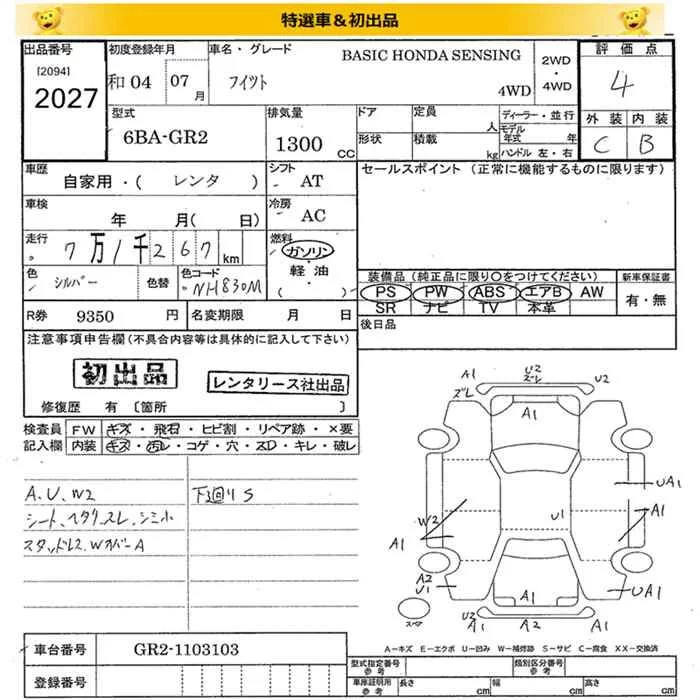 特選車＆初出品
出品番号
[2094]
2027
初度登録年月
和04 07月
車名・グレード
BASIC HONDA SENSING
フィット
4WD
2WD
・
4WD
評価点
4
外装 内装
C B
型式
6BA-GR2
排気量
1300 CC
ドア
形状
定員 人
積載 kg
ディーラー・並行
モデル年式 年
ハンドル 左・右
車歴
自家用・( レンタ )
シフト
AT
車検
年 月( 日)
冷房
AC
走行
7万1千267km
燃料
ガソリン
・
軽油
( )
色
シルバー
色替
色コード
NH830M
R券 9350 円
名変期限 月 日
セールスポイント (正常に機能するものに限ります)
装備品 (純正品に限り○をつけてください)
PS PW ABS エアB AW
SR ナビ TV 本革
新車保証書
有・無
後日品
注意事項申告欄(不具合内容等は具体的に記入して下さい)
初出品
レンタリース社出品
修復歴 有 〔箇所 〕
検査員記入欄
FW キズ・飛石・ヒビ割・リペア跡・×要
内装 キズ・汚レ・コゲ・穴・スD・キレ・破レ
A、U、W2
シート、ヘタリ、スレ、シミ小
スタッドレス、WカバーA
下廻りS
A1 U2 ズレ U2
ズレ
A1
UA1
W2 U1 A1
A1
A2
U1 A1 UA1
スペア
U2 A1 A2 A1
A－キズ E－エクボ U－凹み W－補修跡 S－サビ C－腐食 XX－交換済
車台番号 GR2-1103103
登録番号
型式指定番号 参考
類別区分番号 参考
車庫証明用 参考
長さ cm 幅 cm 高さ cm